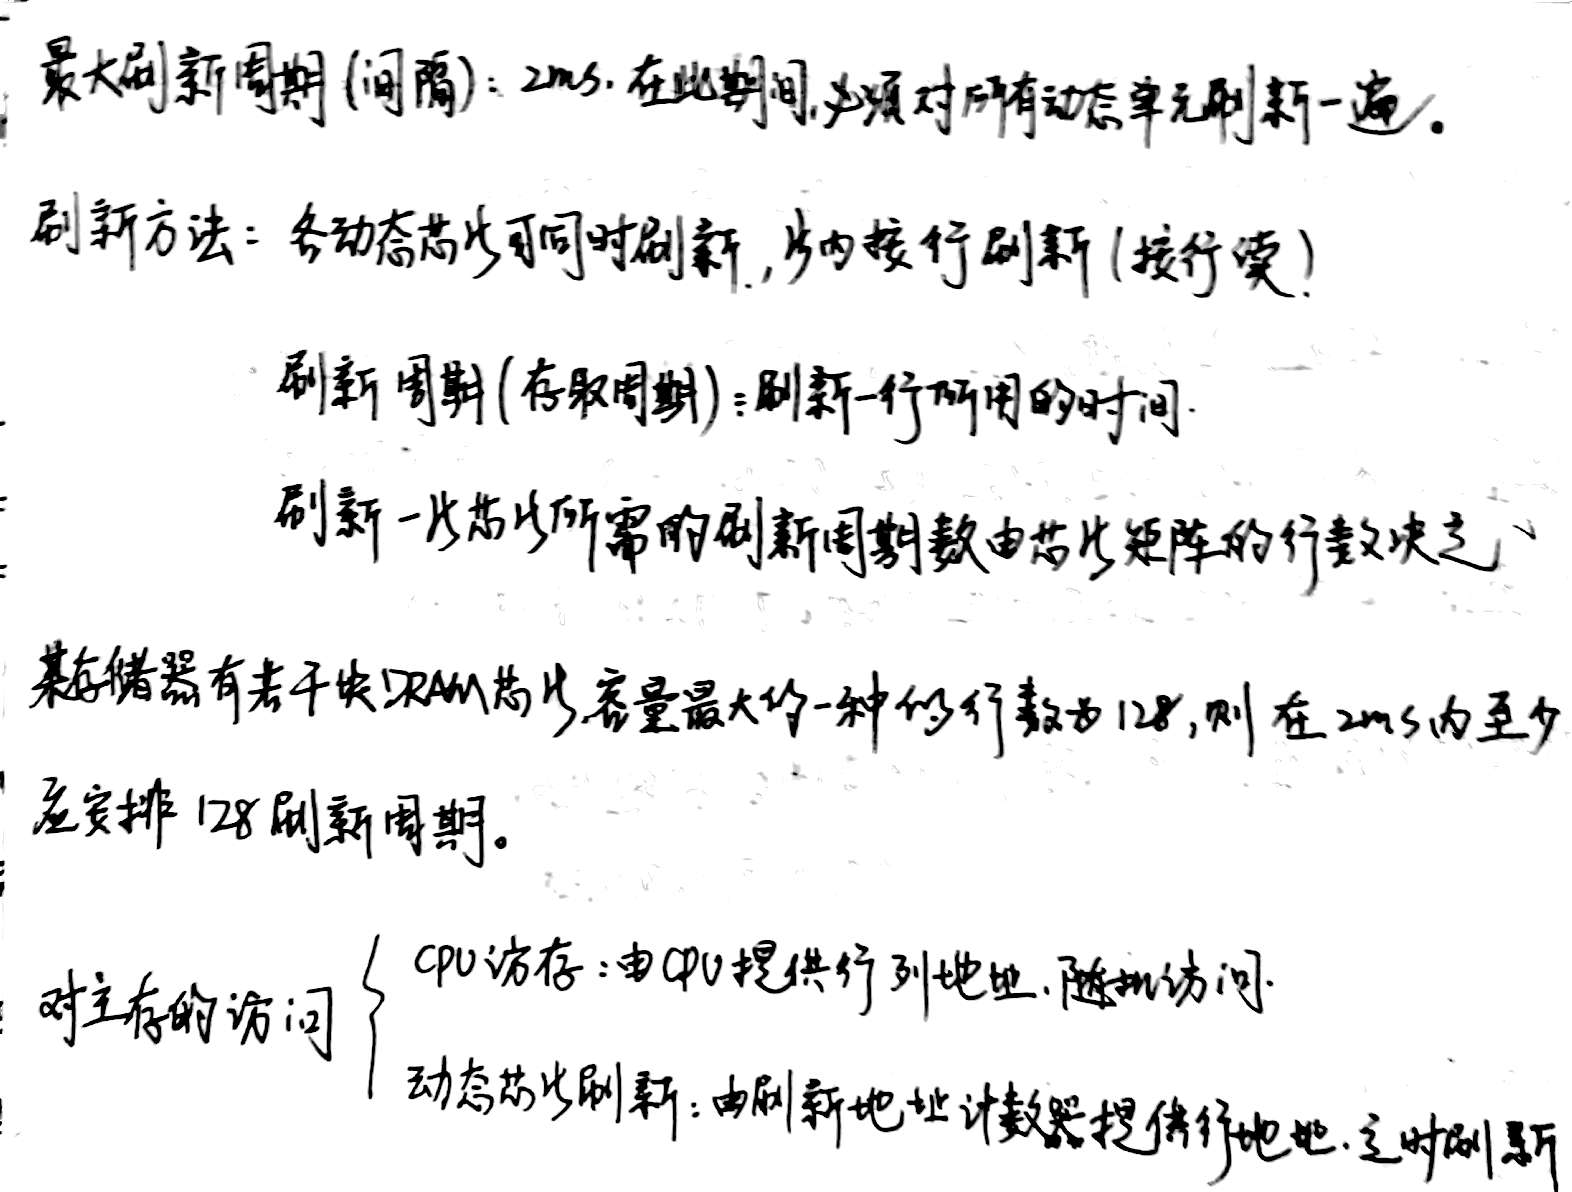 最大刷新周期(间隔): 2ms. 在此期间,必须对所有动态单元刷新一遍。
刷新方法: 各动态芯片可同时刷新, 片内按行刷新(按行读)
刷新周期(存取周期):刷新一行所用的时间.
刷新一片芯片所需的刷新周期数由芯片矩阵的行数决定
某存储器有若干块DRAM芯片,容量最大的一种的行数为128,则在2ms内至少
应安排128刷新周期。
对主存的访问
CPU访存:由CPU提供行列地址.随机访问.
动态芯片刷新:由刷新地址计数器提供行地址.定时刷新